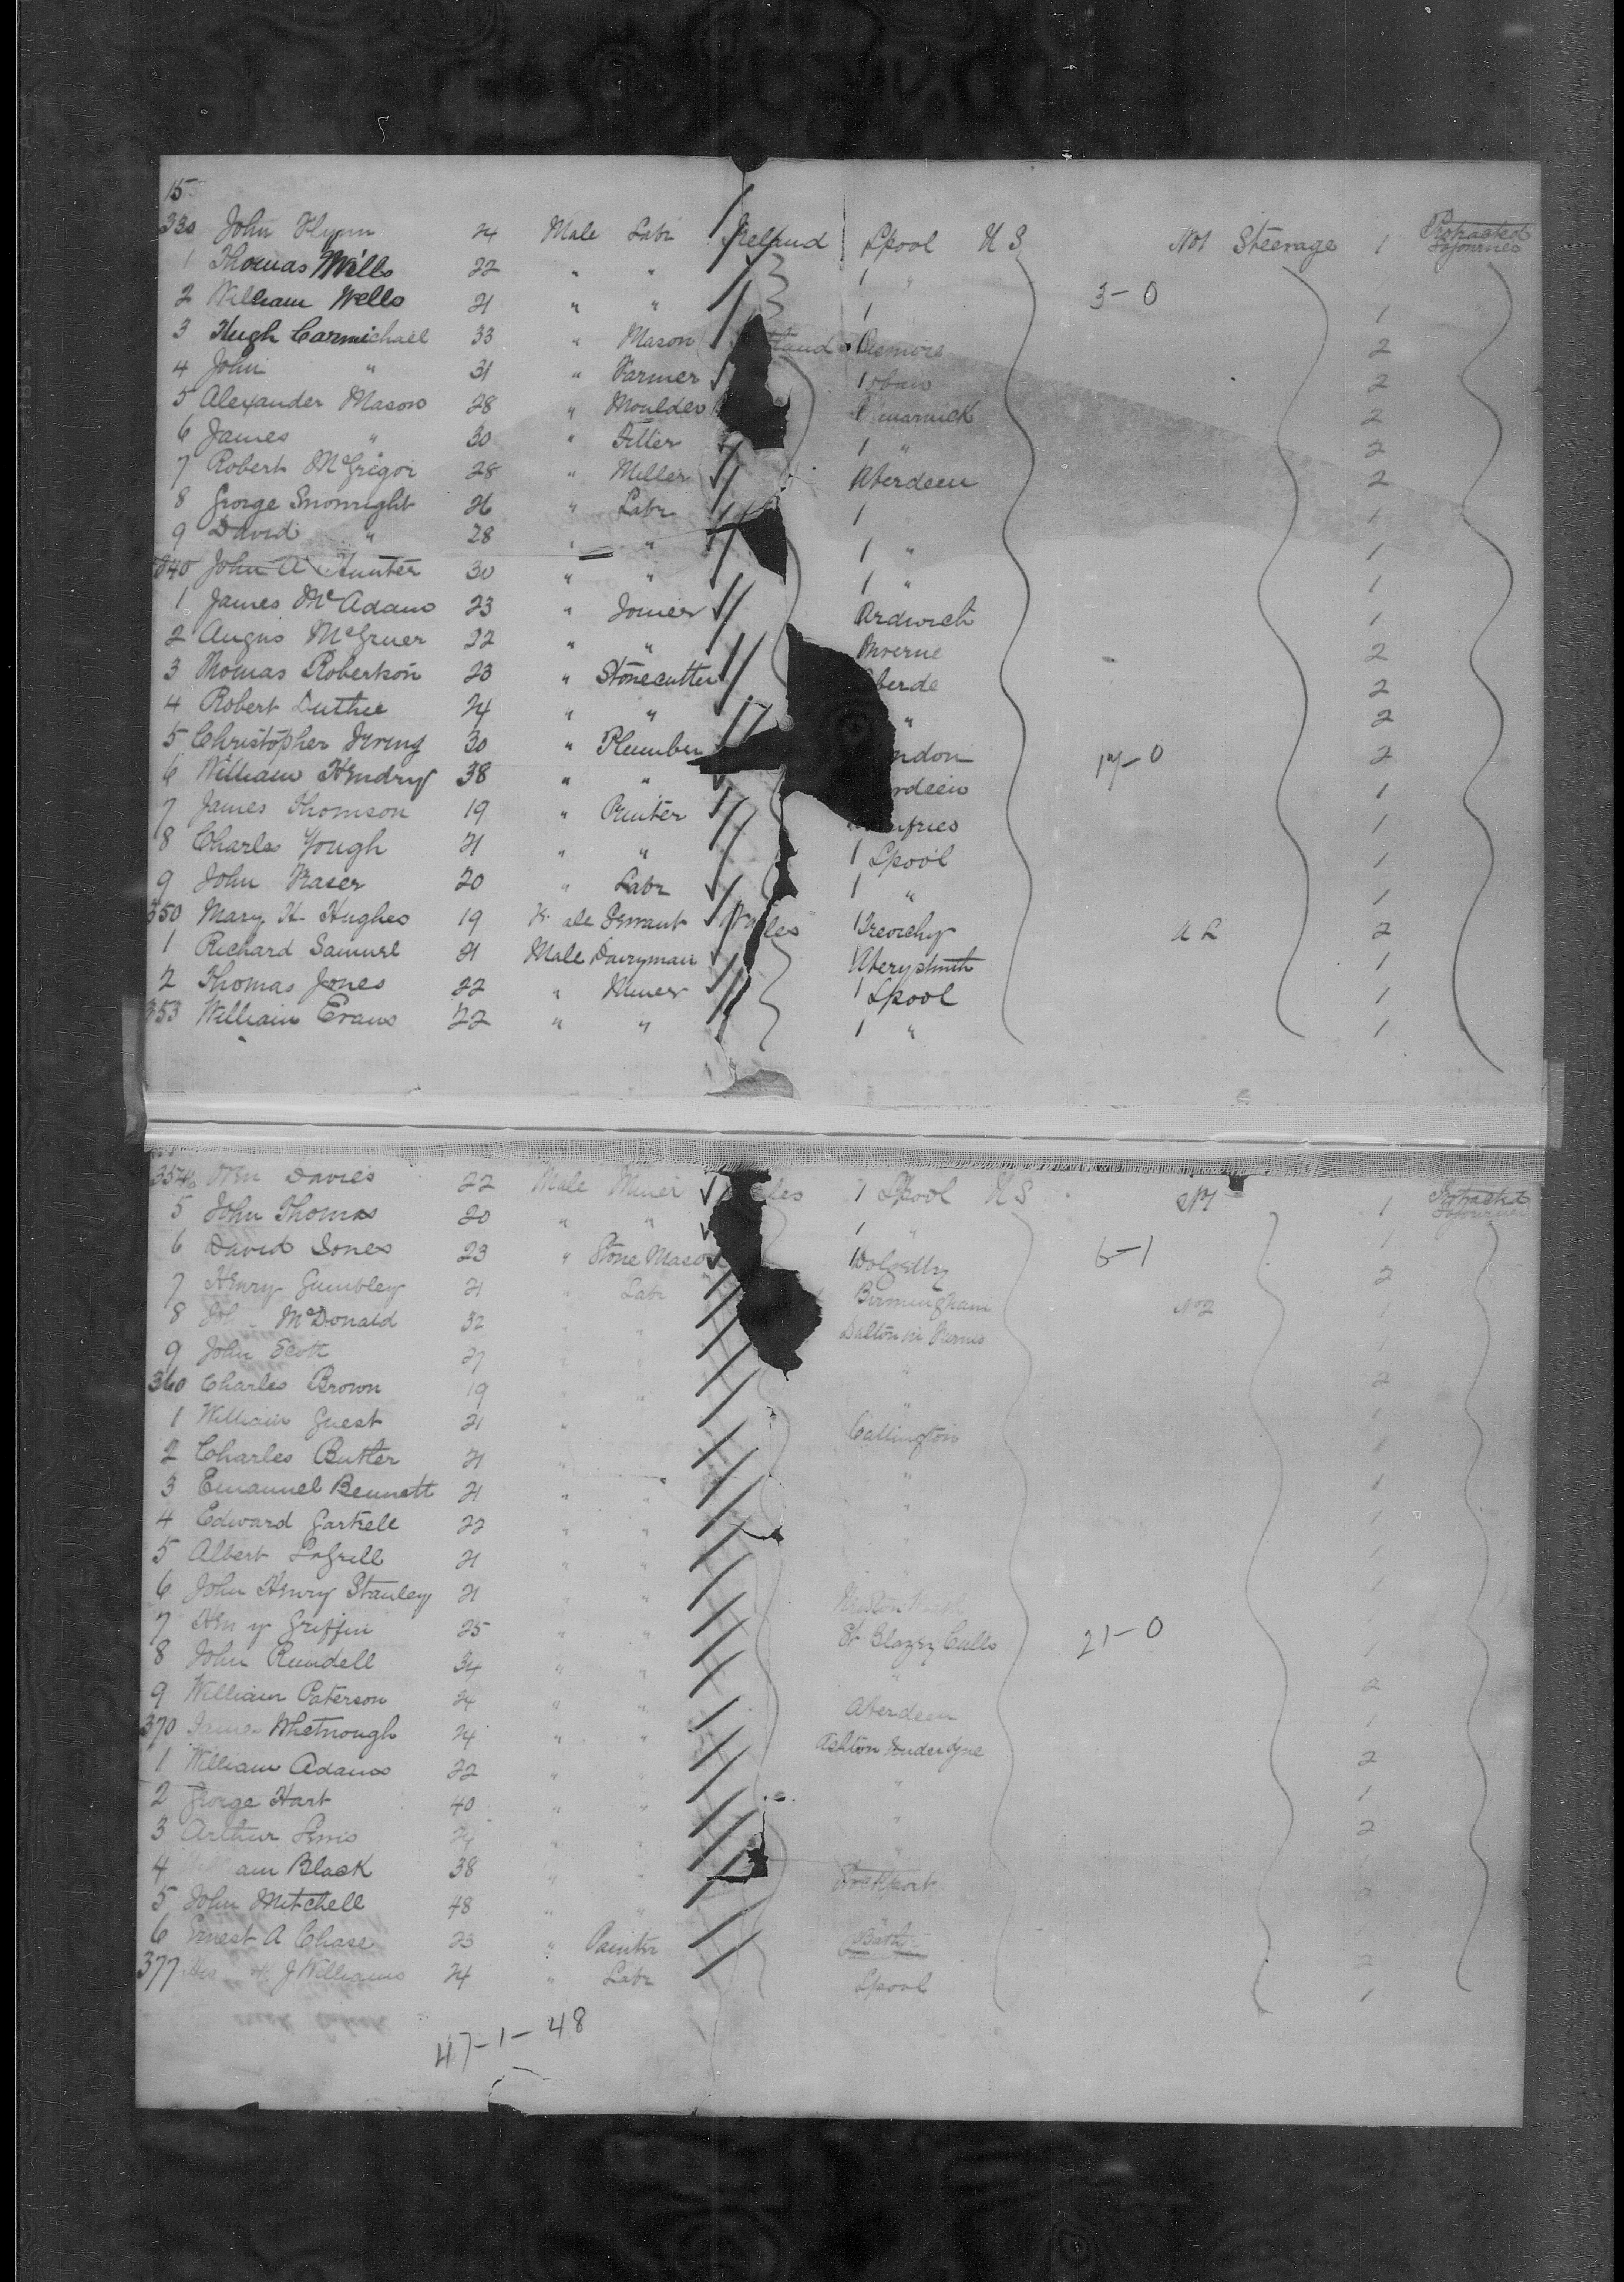 15
330 John Flynn 24 Male Labr Ireland Lpool U S No1 Steerage 1 Protracted Sojourner
1 Thomas Wills 22 " " 1 "
2 William Wells 21 " " 1 3-0 1
3 Hugh Carmichael 33 " Mason tland 2
4 John " 31 " Farmer 1 Oban 2
5 Alexander Mason 28 " Moulder marnick 2
6 James " 30 " Fitter 1 " 2
7 Robert McGregor 28 " Miller Aberdeen 2
8 George 26 " Labr 1 1
9 David " 28 " " 1 " 1
340 John A Hunter 30 " " 1 " 1
1 James McAdam 23 " Joiner 1
2 Angus McGruer 22 " " Inverne 2
3 Thomas Robertson 23 " Stonecutter berde 2
4 Robert Duthie 24 " " " 2
5 Christopher Irving 30 " Plumber ndon 17-0 2
6 William Hendry 38 " " rdeen 1
7 James Thomson 19 " Printer mfries 1
8 Charles Gough 21 " " 1 Lpool 1
9 John Fraser 20 " Labr 1 " 1
350 Mary H. Hughes 19 ale Servant Wales 1 2
1 Richard Samuel 21 Male Dairyman 1
2 Thomas Jones 22 " Miner 1 Lpool 1
353 William Evans 22 " " 1 "  1
354 Wm Davies 22 Male Miner les 1 Lpool U S 1 Protracted Sojourner
5 John Thomas 20 " " 1 " 1
6 David Jones 23 " Stone Maso 1 Dolgelly 6-1 2
7 Henry Gumbley 21 " Labr Birmingham No2 1
8 McDonald 32 " " Dalton in Furness
9 John Scott 27 " " " 1
360 Charles Brown 19 " " " 2
1 William Guest 21 " Callington 1
2 Charles Butler 21 " " 1
3 Emanuel Bennett 21 " " " 1
4 Edward Gartrell 22 " " 1
5 Albert 21 " " 1
6 John Henry Stanley 21 " " 1
7 Henry Griffin 25 " " St Blazey 21-0 1
8 John Rundell 34 " " " 2
9 William Paterson 24 " " Aberdeen 1
370 James Whetnough 24 " " Ashton Underlyne 2
1 William Adams 22 " " " 1
2 George Hart 40 " " 2
3 Arthur Lewis
4 am Black 38 Stockport
5 John Mitchell 48 " "
6 Ernest A Chase 23 " Painter Bath 2
377 J Williams 24 " Labr Lpool 1
47-1-48